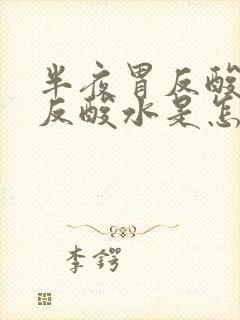 半夜胃反酸
反酸水是怎
李锷